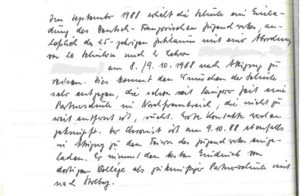 Im September 1988 erhält die Schule eine Einla-
dung des Deutsch-Französischen Jugendwerks an-
läßlich des 25-jährigen Jubiläums mit einer Abordnung
von 20 Schülern und 2 Lehrern
am 8./9.10.1988 nach
reisen. Dies kommt den Wünschen der Schule
sehr entgegen, die schon seit langer Zeit eine
Partnerschule in Nordfrankreich, die nicht zu
weit entfernt ist, sucht. Erste Kontakte werden
geknüpft. Der Chronist ist am 9.10.88 ebenfalls
in zu den Feiern des Jugendwerks einge-
laden. Er nimmt den besten Eindruck vom
dortigen College als zukünftiger Partnerschule mit
nach